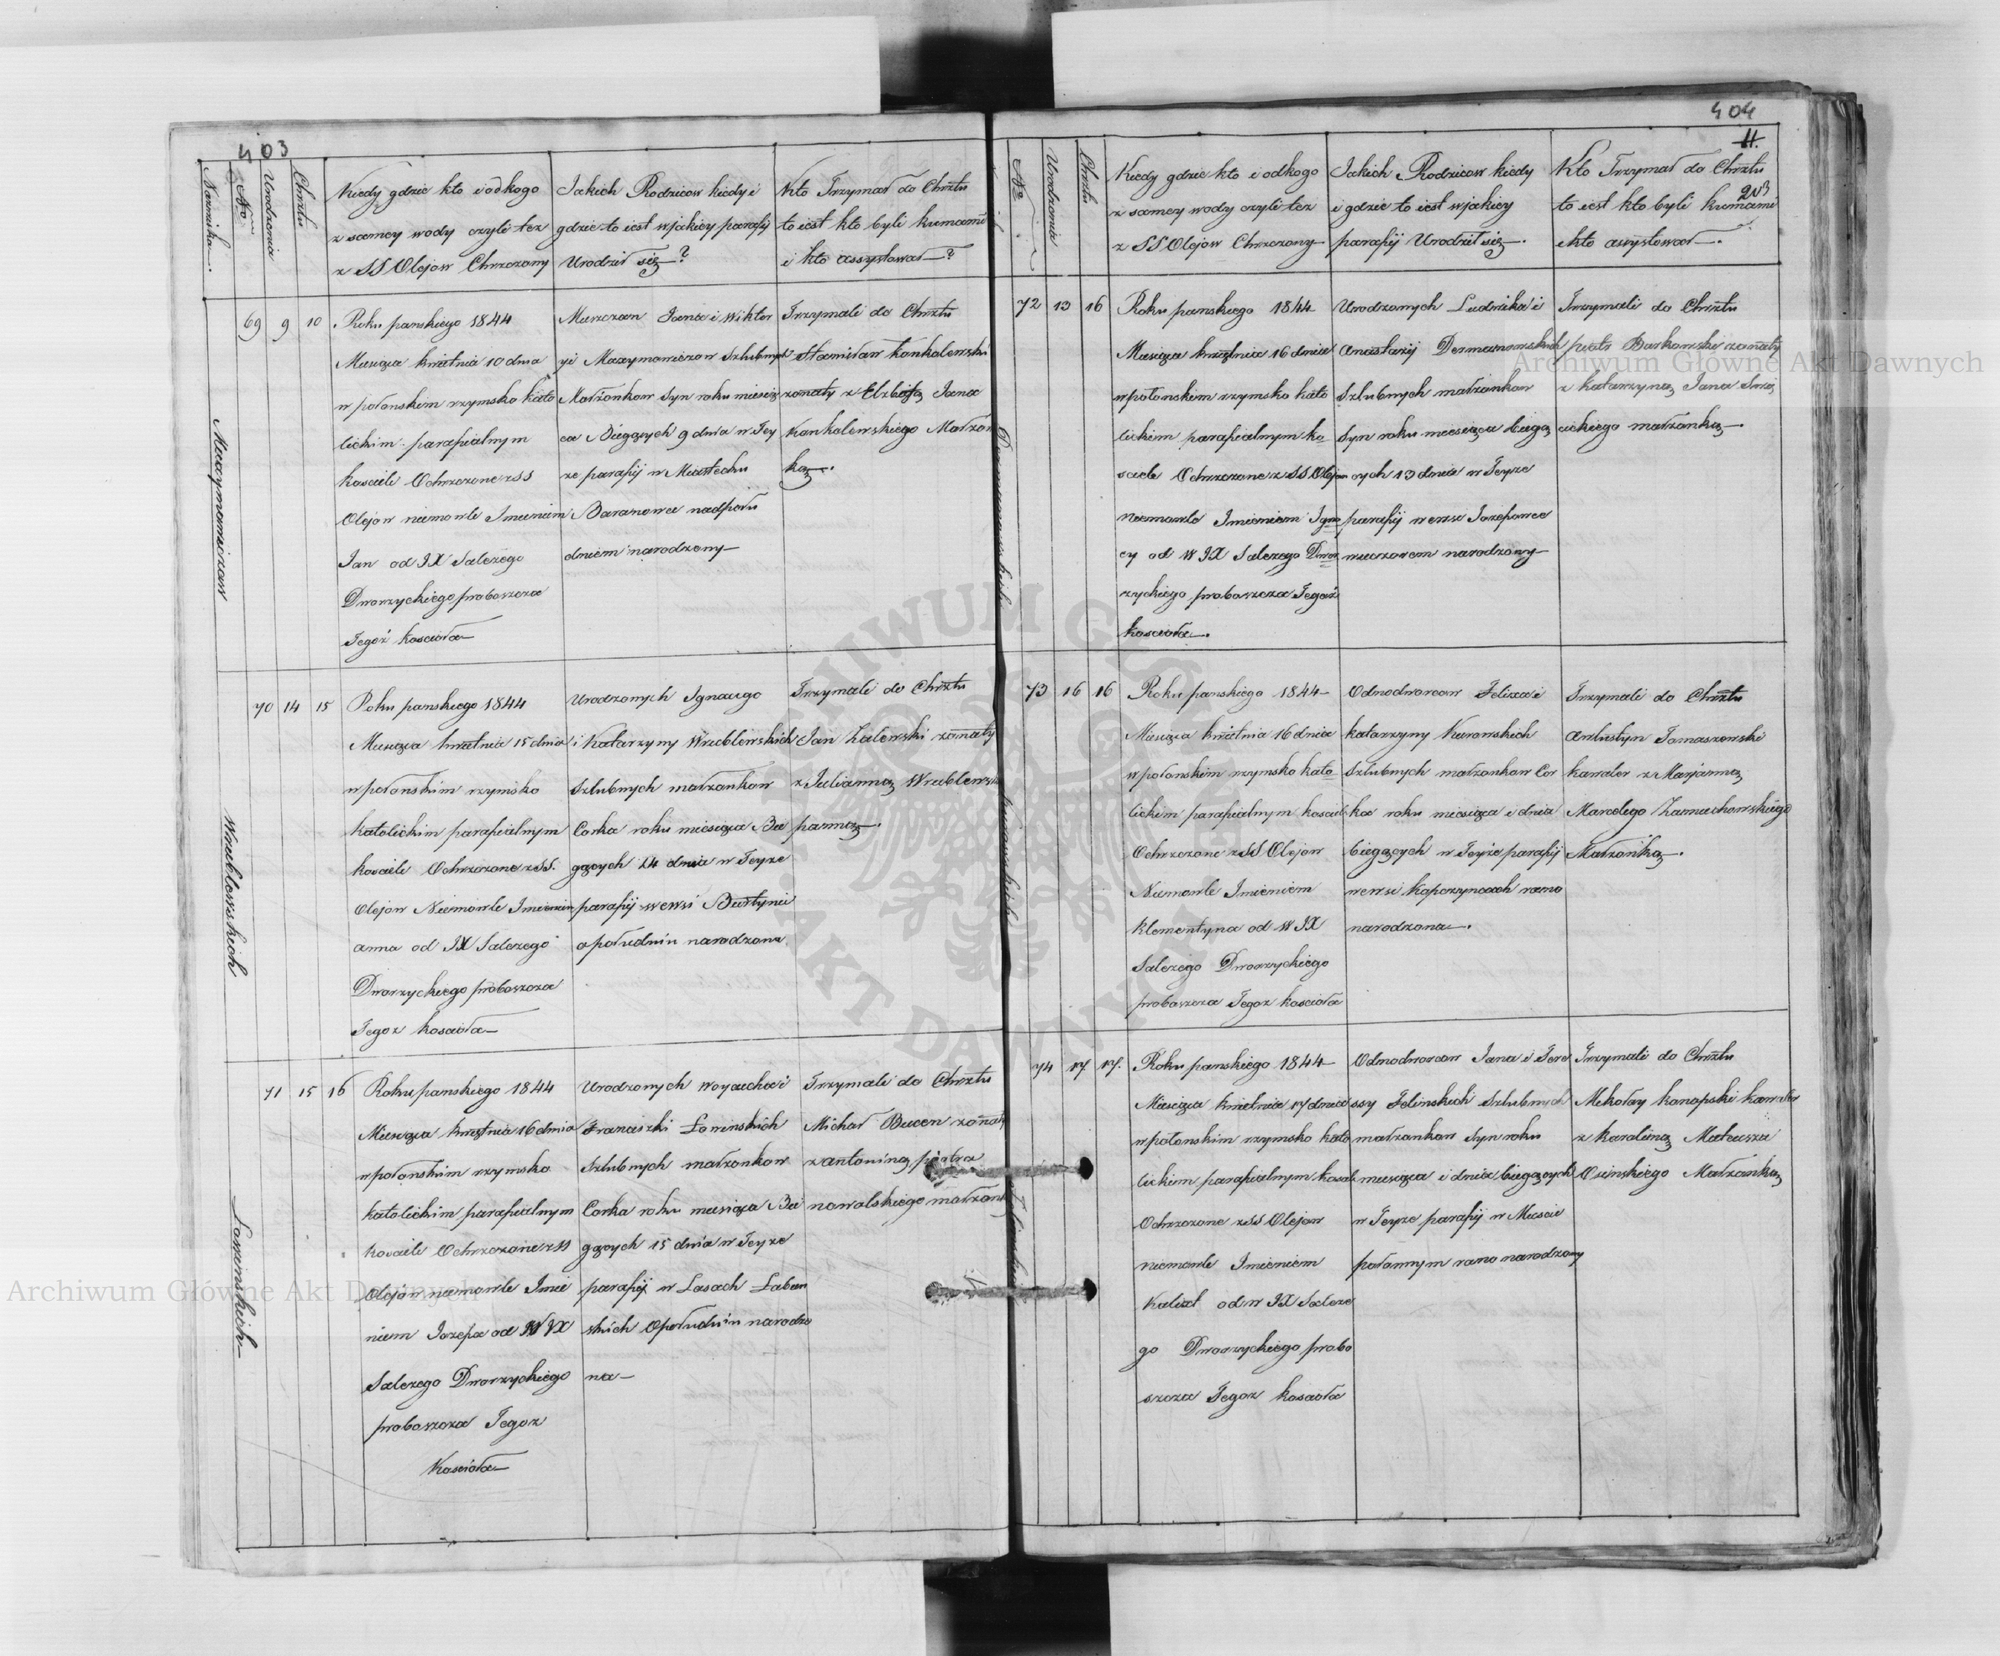 403
Nazwisko
No
Urodzenia
Chrztu
Kiedy gdzie kto i od kogo
z samey wody czyli tez
z SS Olejow Chrzczony
Jakich Rodzicow kiedy i
gdzie to iest w jakiey parafij
Urodził się ?
Kto Trzymał do Chrztu
to iest kto byli kumami
i kto assystował ?
69 9 10
Roku panskiego 1844
Miesiąca kwietnia 10 dnia
w połonskim rzymsko kato
lickim parafialnym
kosciele Ochrzczone z SS
Olejow niemowle Imieniem
Jan od JX Salezego
Dworzyckiego proboszcza
Tegoż kosciola
yi Maxymowiczow Szlubnych
Małżonkow Syn roku miesią
ca Bieżących 9 dnia w Tey
ze parafij w Miasteczku
Baranowce nad połu
dniem narodzony
Trzymali do Chrztu
Stanisław Konkolewski
zonaty z Elzbietą Jana
Konkolewskiego Małżon
ką
Maxymowiczow
70 14 15
Roku panskiego 1844
Miesiąca kwietnia 15 dnia
w połonskim rzymsko
katolickim parafialnym
kosciele Ochrzczone z SS.
Olejow Niemowle Imieniem
Anna od JX Salezego
Dworzyckiego proboszcza
Tegoz kosciola
Urodzonych Ignacego
i Katarzyny Wrublewskich
Szlubnych małzonkow
Corka roku miesiąca Bie
gących 14 dnia w Teyze
parafij wewsi Burtyni
o południu narodzona
Trzymali do Chrztu
Jan Zalewski zonaty
z Julianną Wrublewsk
panną
Wrublewskich
71 15 16
Roku panskiego 1844
Miesiąca kwietnia 16 dnia
w połonskim rzymsko
katolickim parafialnym
kosciele Ochrzczone z SS
Olejow niemowle Imie
niem Jozefa od W JX
Salezego Dworzyckiego
proboszcza Tegoz
Kosciola
Urodzonych Woyciecha i
Franciszki Lowinskich
Szlubnych małzonkow
Corka roku miesiąca Bie
gących 15 dnia w Teyze
parafij w Lasach Laben
skich o południu narodzo
na
Trzymali do Chrztu
Michał Bucen zonaty
z Antoniną piotra
nowalskiego małzonk
404
11.
203
No
Urodzenia
Chrztu
Kiedy gdzie kto i od kogo
z samey wody czyli tez
z SS Olejow Chrzczony
Jakich Rodzicow kiedy
i gdzie to iest w jakiey
parafij Urodził się
Kto Trzymał do Chrztu
to iest kto byli kumami
i kto assystował
72 13 16
Roku panskiego 1844
Miesiąca kwietnia 16 dnia
w połonskim rzymsko kato
lickim parafialnym ko
sciele Ochrzczone z SS Olejow
Niemowle Imieniem Igna
cy od W JX Salezego Dwor
zyckiego proboszcza Tegoż
kosciola
Urodzonych Ludwika i
Szlubnych małzonkow
Syn roku miesiąca bieżą
cych 13 dnia w Teyze
parafij wewsi Jozefowce
wieczorem narodzony
Trzymali do Chrztu
piotr Barkowski zonaty
z katarzyną Jana
cickiego małzonką
73 16 16
Roku panskiego 1844
Miesiąca kwietnia 16 dnia
w połonskim rzymsko kato
lickim parafialnym kosciele
Ochrzczone z SS Olejow
Niemowle Imieniem
Klementyna od W JX
Salezego Dworzyckiego
proboszcza Tegoz kosciola
Odnodworcow Felixa i
katarzyny Kurowskich
Szlubnych małzonkow Cor
ka roku miesiąca i dnia
bieżących w Teyże parafij
wewsi Koparzyncach rano
narodzona
Trzymali do Chrztu
Antustyn Tomaszewski
kawaler z Marjanną
Marcelego Zamiechowskiego
Małżonką
74 17 17.
Roku panskiego 1844
Miesiąca kwietnia 17 dnia
w połonskim rzymsko kato
lickim parafialnym kosciele
Ochrzczone z SS Olejow
niemowle Imieniem
Kalixt od W JX Saleze
go Dworzyckiego probo
szcza Tegoz kosciola
Odnodworcow Jana i Tere
ssy Jelinskich Szlubnych
małzonkow Syn roku
miesiąca i dnia bieżących
w Teyze parafij w Miescie
połonnym rano narodzony
Trzymali do Chrztu
Mikołay Konopski kawaler
z Karoliną Mateusza
Osinskiego Małżonką
Archiwum Główne Akt Dawnych
Archiwum Główne Akt Dawnych
ARCHIWUM GŁÓWNE AKT DAWNYCH